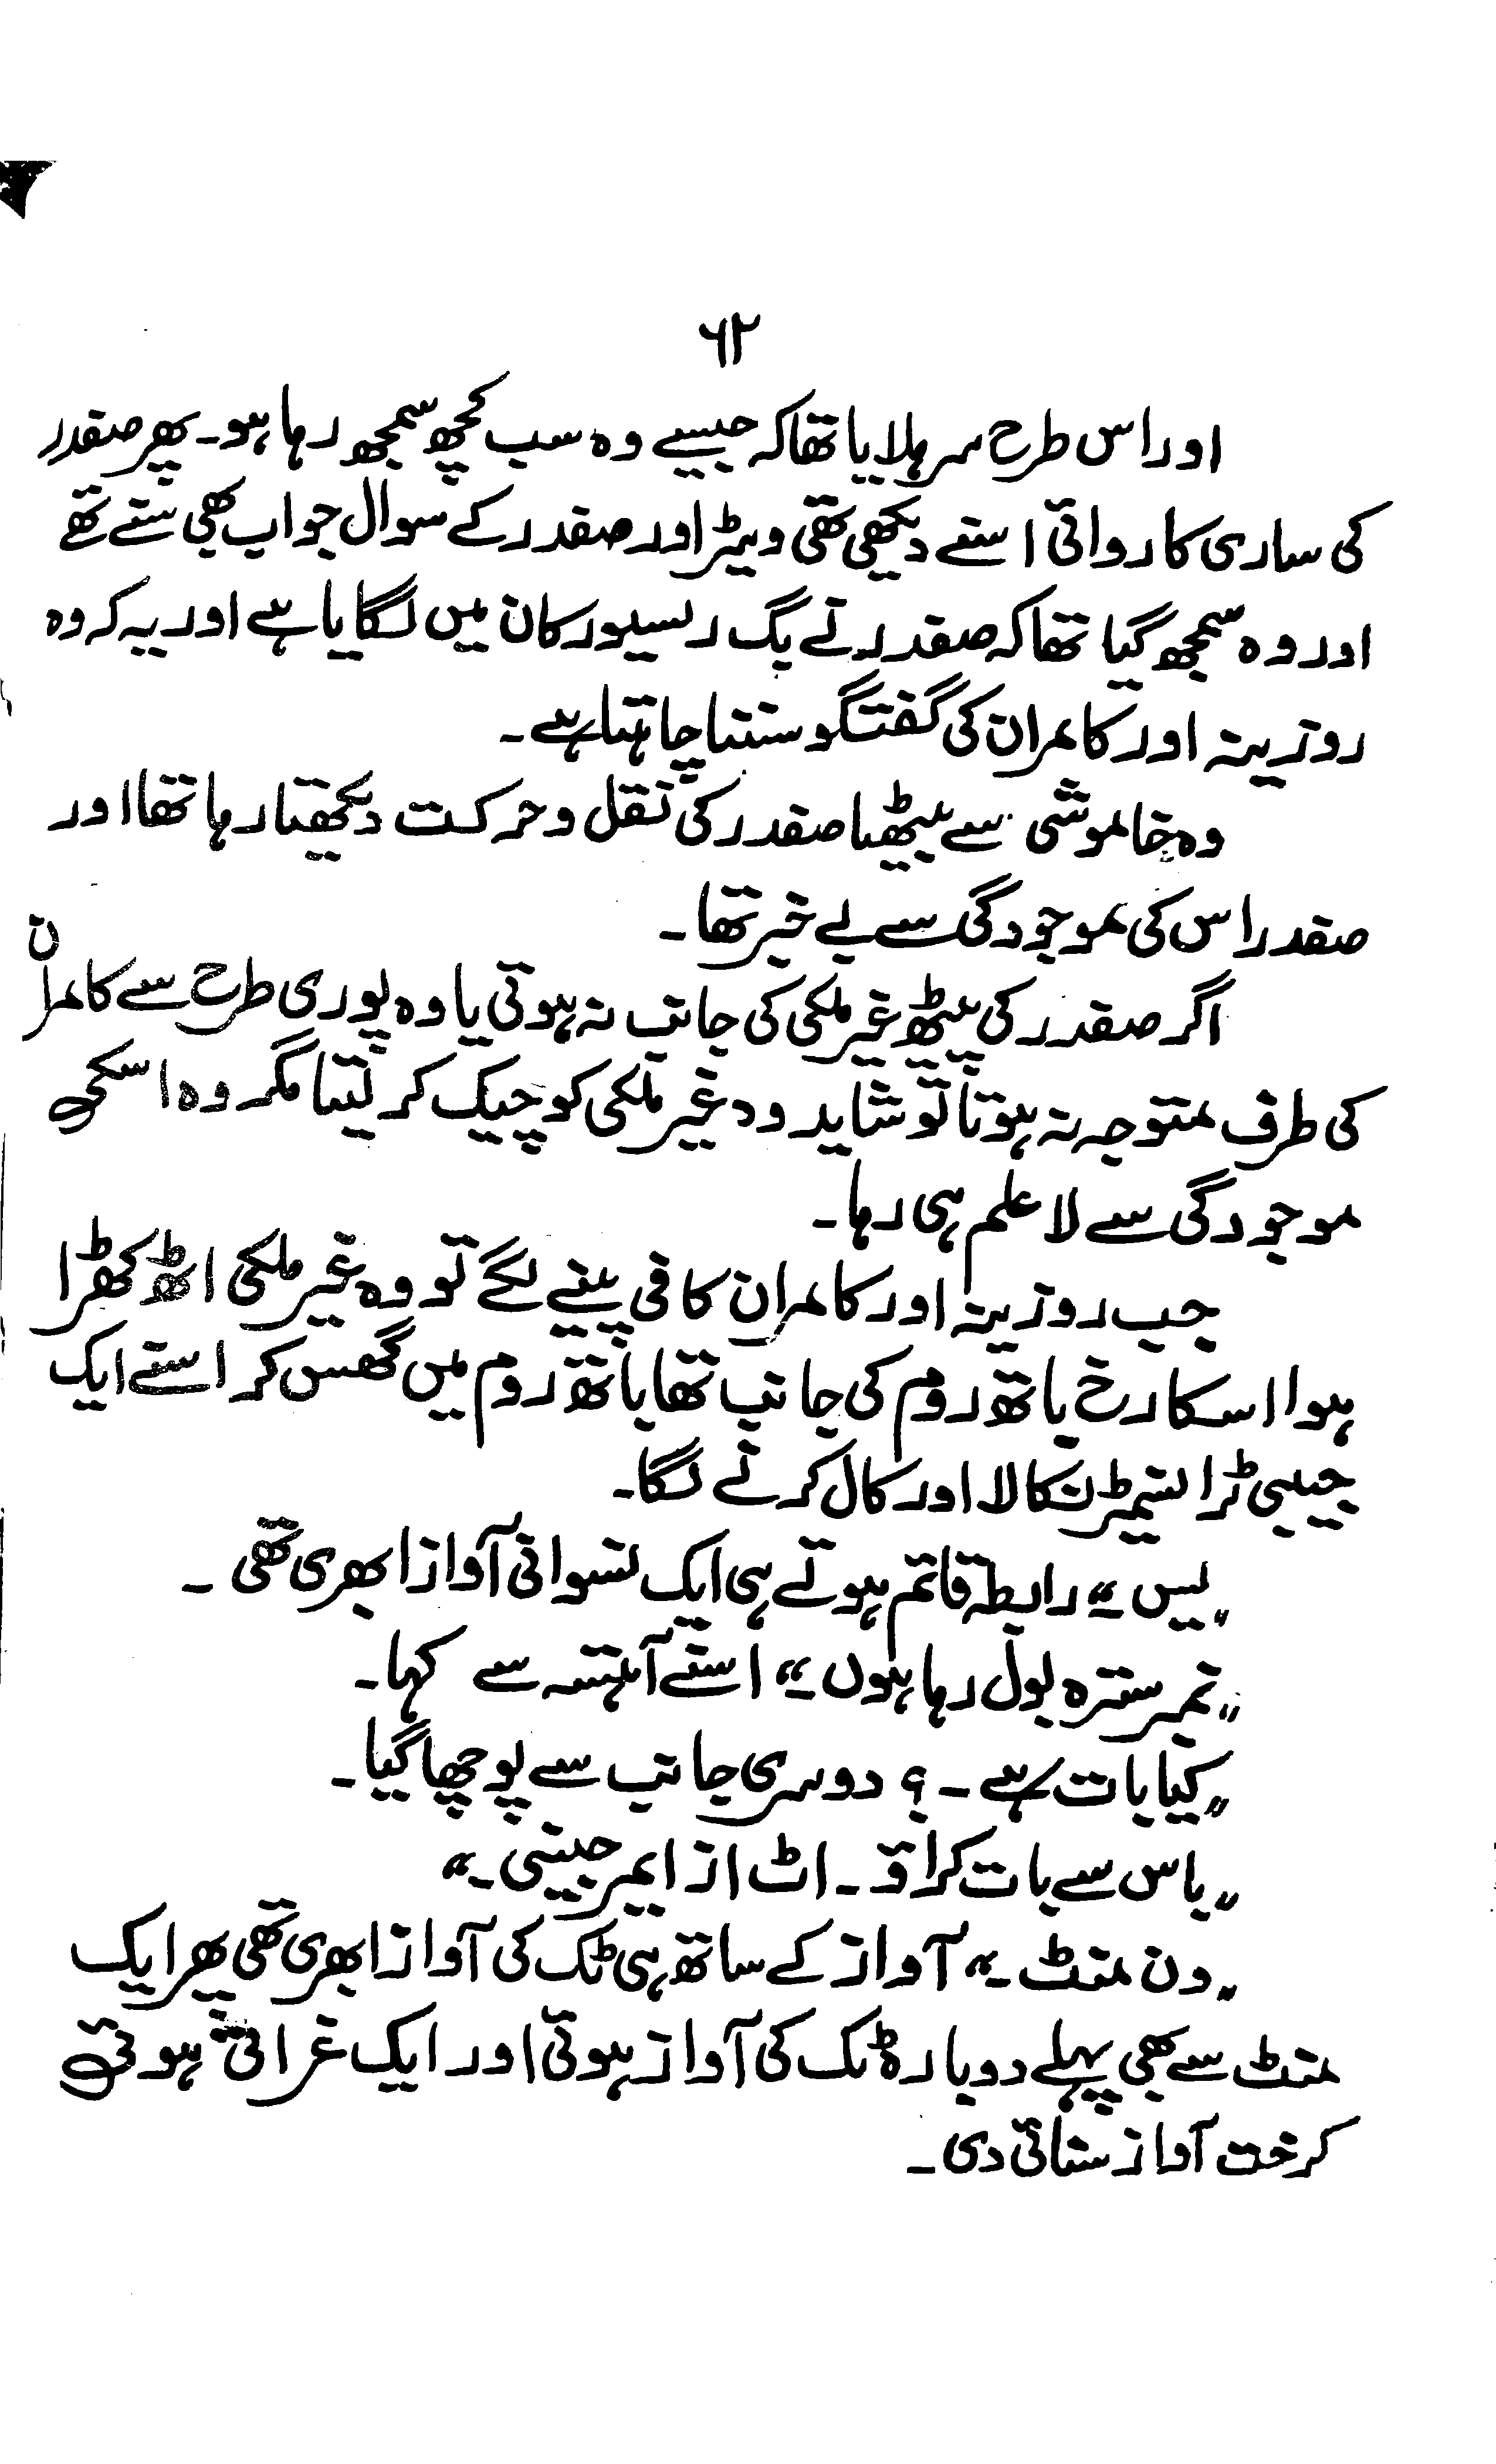 ۶۲
اور اس طرح سر ہلایا تھا کہ جیسے وہ سب کچھ سمجھ رہا ہو۔ پھر صفدر
کی ساری کاروائی اسنے دیکھی تھی ویٹر اور صفدر کے سوال جواب بھی سنے تھے
اور وہ سمجھ گیا تھا کہ صفدر نے بگ ریسیور کان میں لگایا ہے اور یہ کہ وہ
روزینہ اور کامران کی گفتگو سننا چاہتا ہے۔
وہ خاموشی سے بیٹھا صفدر کی نقل و حرکت دیکھتا رہا تھا اور
صفدر اس کی موجودگی سے بے خبر تھا۔
اگر صفدر کی پیٹھ غیر ملکی کی جانب نہ ہوتی یا وہ پوری طرح سے کامران
کی طرف متوجہ نہ ہوتا تو شاید وہ غیر ملکی کو چیک کر لیتا مگر وہ اسکی
موجودگی سے لا علم ہی رہا۔
جب روزینہ اور کامران کافی پینے لگے تو وہ غیر ملکی اٹھ کھڑا
ہوا اسکا رخ باتھ روم کی جانب تھا باتھ روم میں گھس کر اسنے ایک
جیبی ٹرانسمیٹر نکالا اور کال کرنے لگا۔
"یس۔" رابطہ قائم ہوتے ہی ایک نسوانی آواز ابھری تھی۔
"نمبر سترہ بول رہا ہوں۔" اسنے آہستہ سے کہا۔
"کیا بات ہے۔؟ دوسری جانب سے پوچھا گیا۔
"باس سے بات کراؤ۔ اٹ از ایمرجینسی۔"
"ون منٹ۔" آواز کے ساتھ ہی ٹک کی آواز ابھری تھی پھر ایک
منٹ سے بھی پہلے دوبارہ ٹک کی آواز ہوئی اور ایک غراتی ہوئی
کرخت آواز سنائی دی۔